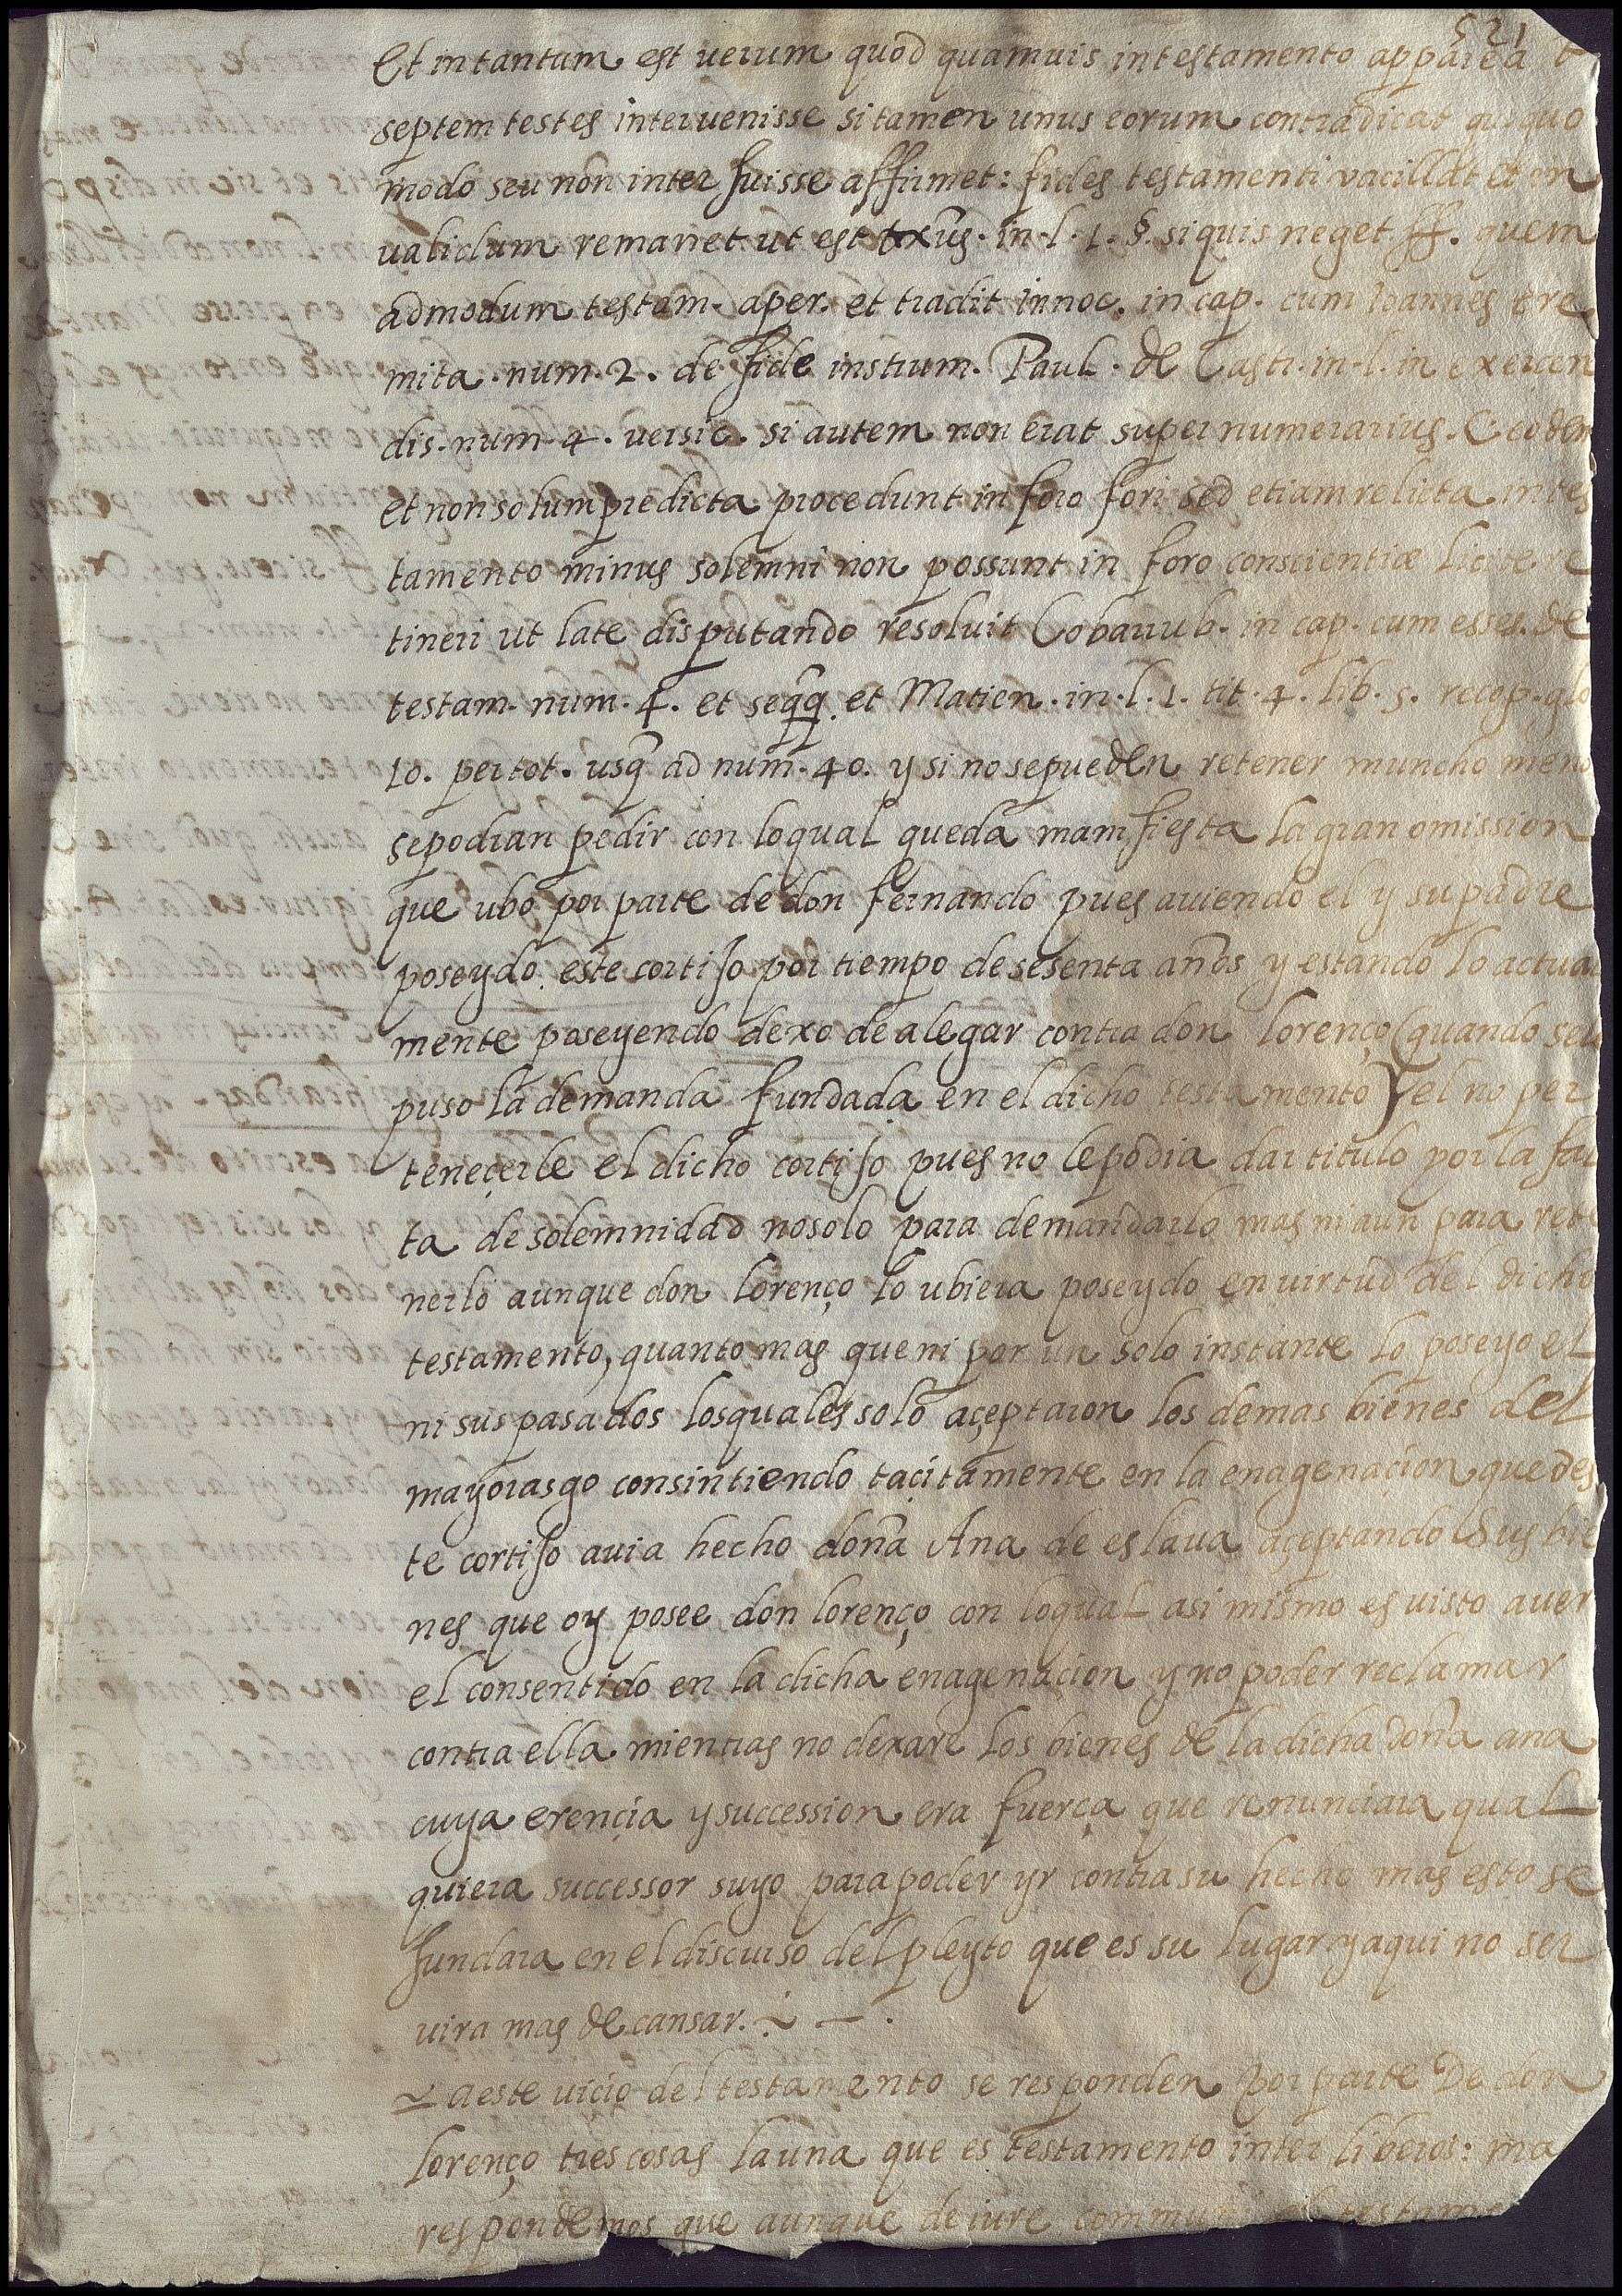 521
Et in tantum est verum quod quamuis in testamento apparea t
septem testes interuenisse si tamen unus eorum contradicat qui quo
modo seu non inter fuisse affirmet: fides testamenti vacillat et in
ualidum remanet ut est txûs. in. l. 1. §. si quis neget ff. quem
admodum testam. aper. et tradit innoc. in cap. cum Ioannes ere
mita. num. 2. de fide instrum. Paul. de Castr. in. l. in exercen
dis. num. 4. versic. si autem non erat super numerarius. C. eodem
et non solum predicta procedunt in foro fori sed etiam relicta in tes
tamento minus solemni non possunt in foro conscientiæ licite re
tineri ut late disputando resoluit Cobarrub. in cap. cum esses. de
testam. num. 4. et seqq̃. et Matien. in. l. 1. tit. 4. lib. 5. recop. glo
10. per tot. usq̃ ad num. 40. y si no se pueden retener muncho men
se podran pedir con lo qual queda manifiesta la gran omission
que ubo por parte de don fernando pues auiendo el y su padre
poseydo este cortijo por tiempo de sesenta años y estando lo actual
mente poseyendo dexo de alegar contra don lorenço (quando se le
puso la demanda fundada en el dicho testamento) el no per
teneçerle el dicho cortijo pues no le podia dar titulo por la fal
ta de solemnidad no solo para demandarlo mas ni aun para rete
nerlo aunque don lorenço lo ubiera poseydo en uirtud del dicho
testamento, quanto mas que ni por un solo instante lo poseyo el
ni sus pasados los quales solo açeptaron los demas bienes del
mayorasgo consintiendo taçitamente en la enagenaçion que des
te cortijo auia hecho doña Ana de eslaua açeptando sus bie
nes que oy posee don lorenço con lo qual asi mismo es uisto auer
el consentido en la dicha enagenacion y no poder reclamar
contra ella mientras no dexare los bienes de la dicha doña ana
cuya erençia y succession era fuerça que renunciara qual
quiera successor suyo para poder yr contra su hecho mas esto se
fundara en el discurso del pleyto que es su lugar y aqui no ser
uira mas de cansar.
A este uiçio del testamento se responden por parte De don
lorenço tres cosas la una que es testamento inter liberos: ma
respondemos que aunque de iure commun